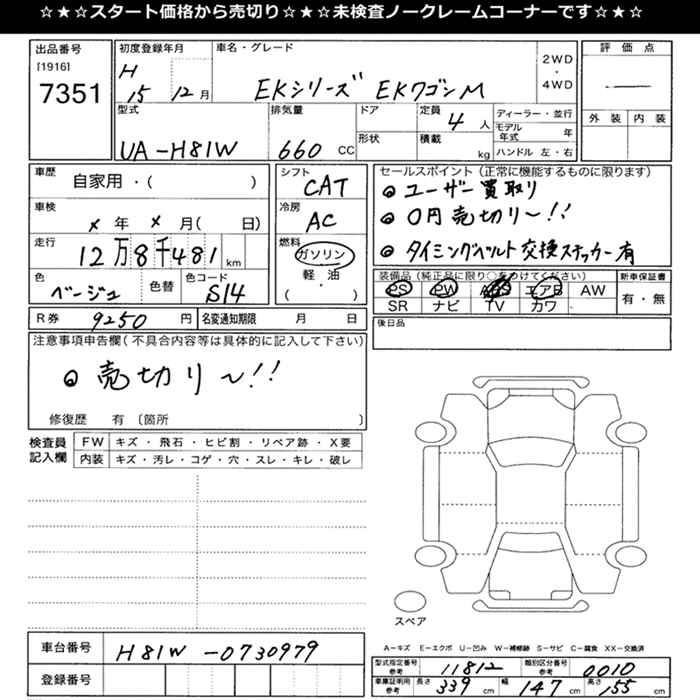 ☆★☆★スタート価格から売切り☆★☆★未検査ノークレームコーナーです☆★☆★
出品番号
[1916]
7351
初度登録年月
H
15 12 月
車名・グレード
EKシリーズ EKワゴンM
2WD
・
4WD
評価点
外装 内装
型式
UA-H81W
排気量
660 CC
ドア
形状
定員
4 人
積載
kg
ディーラー・並行
モデル年式 年
ハンドル 左・右
車歴
自家用・( )
車検
× 年 × 月( 日)
走行
12万8千481 km
色
ベージュ
色替
色コード
S14
シフト
CAT
冷房
AC
燃料
ガソリン
軽・油
( )
セールスポイント(正常に機能するものに限ります)
◎ユーザー買取り
◎0円売切り〜!!
◎タイミングベルト交換ステッカー有
装備品(純正品に限り○をつけてください)
PS PW ABS エアB AW
SR ナビ TV カワ
新車保証書
有・無
R券 9250 円
名変通知期限 月 日
後日品
注意事項申告欄(不具合内容等は具体的に記入して下さい)
◎売切り〜!!
修復歴 有 〔箇所 〕
検査員記入欄
FW キズ・飛石・ヒビ割・リペア跡・X要
内装 キズ・汚レ・コゲ・穴・スレ・キレ・破レ
スペア
A―キズ E―エクボ U―凹み W―補修跡 S―サビ C―腐食 XX―交換済
車台番号 H81W-0730979
登録番号
型式指定番号 参考 11812 類別区分番号 参考 0010
車庫証明用 参考 長さ 339 cm 幅 147 cm 高さ 155 cm